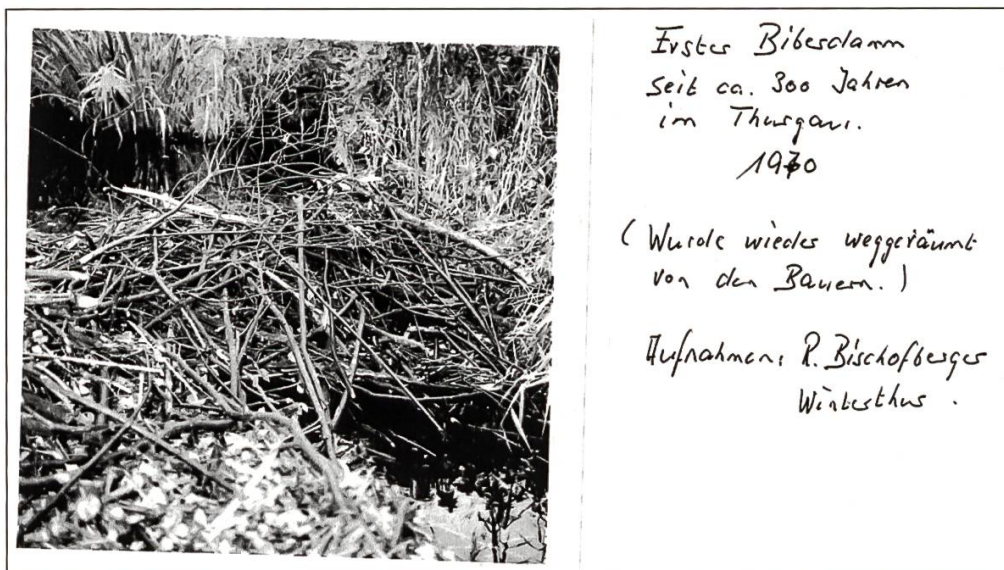 Erster Biberdamm
seit ca. 300 Jahren
im Thurgau.
1970
(Wurde wieder weggeräumt
von den Bauern.)
Aufnahmen: R. Bischofberger
Winterthur.